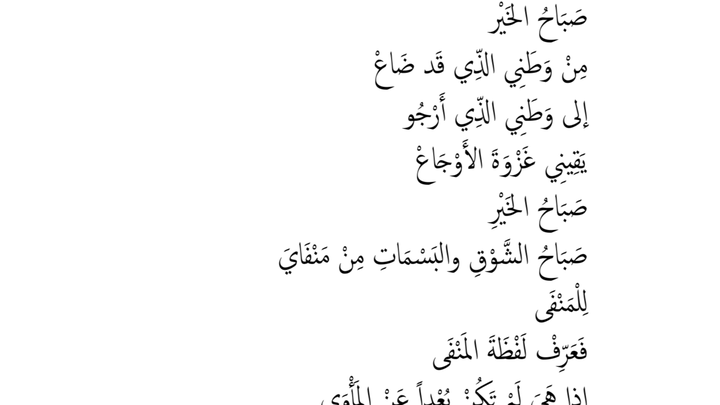 صَبَاحُ الخَيْر
مِنْ وَطَنِي الذِّي قَد ضَاعْ
إلى وَطَنِي الذِّي أَرْجُو
يَقِينِي غَزْوَةَ الأَوْجَاعْ
صَبَاحُ الخَيْرِ
صَبَاحُ الشَّوْقِ والبَسْمَاتِ مِنْ مَنْفَايَ
لِلْمَنْفَى
فَعَرِّفْ لَفْظَةَ المَنْفَى
إذا هَيَ لَمْ تَكُنْ بُعْداً عَنْ المَأْوَى